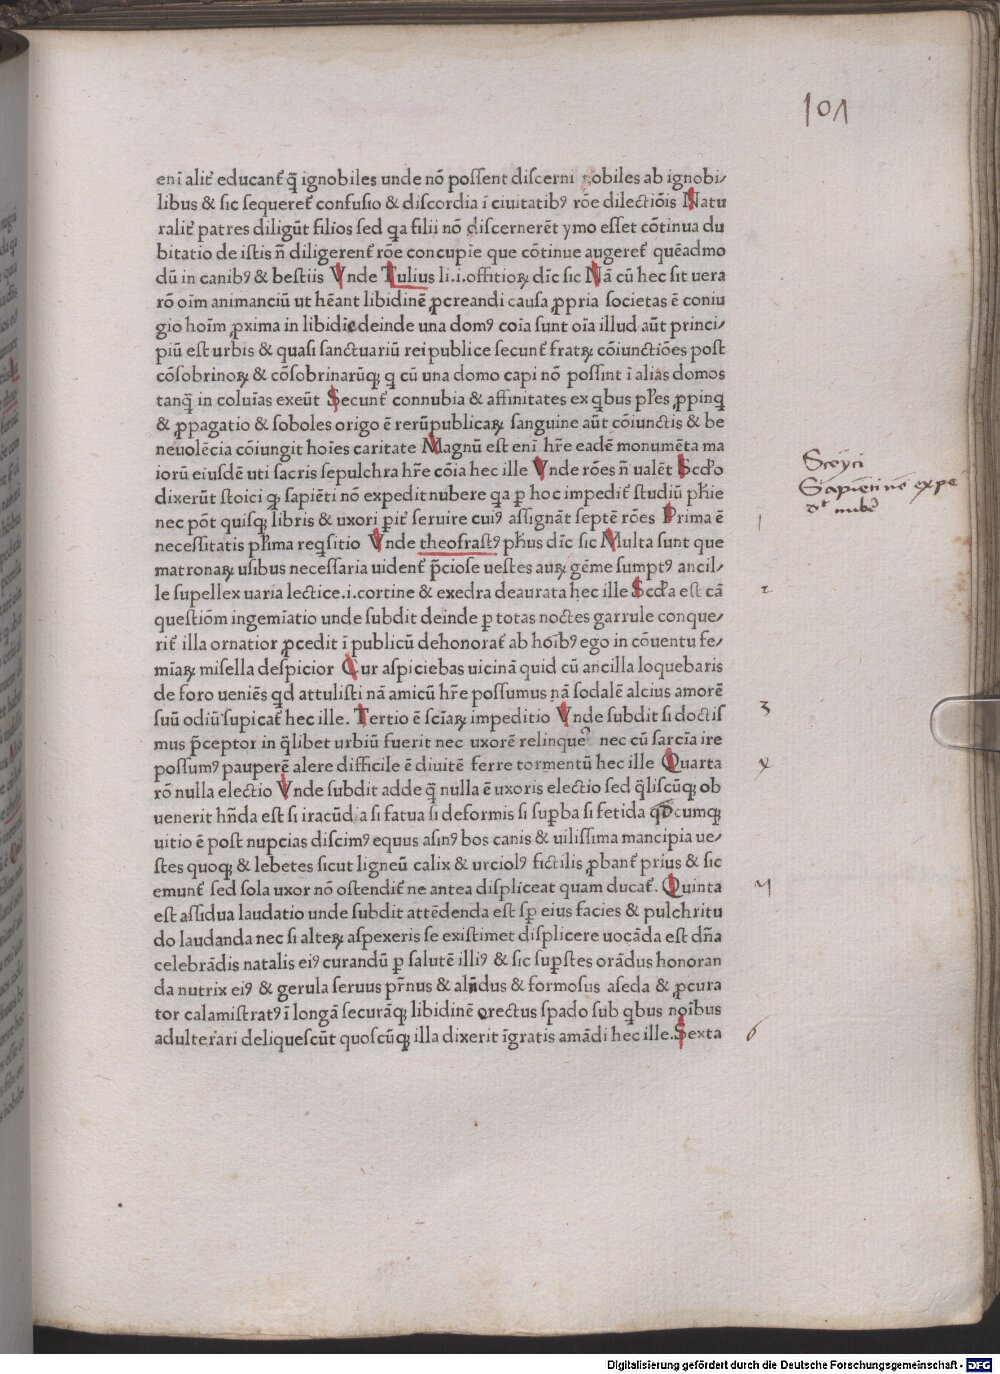 101
enī alit᷑ educant᷑ q̄ ignobiles unde nō possent discerni nobiles ab ignobi⸗
libus & sic sequeret᷑ confusio & discordia ī ciuitatibꝰ rōe dilectiōis Natu
ralit᷑ patres diligūt filios sed qa filii nō discernerēt ymo esset cōtinua du
bitatio de istis n̄ diligerent᷑ rōe concupie que cōtinue augeret᷑ quēadmo
dū in canibꝰ & bestiis Vnde Tulius li.i.offitioꝝ dīc sic Nā cū hec sit uera
rō oīm animanciū ut hēant libidinē ꝓcreandi causa ꝓpria societas ē coniu
gio hoīm ꝓxima in libidīe deinde una domꝰ coīa sunt oīa illud aūt princi⸗
piū est urbis & quasi sanctuariū rei publice secunt᷑ fratꝝ cōiunctiōes post
cōsobrinoꝝ & cōsobrinarūqꝫ q cū una domo capi nō possint ī alias domos
tanq̄ in coluīas exeūt Secunt᷑ connubia & affinitates ex qbus pr̄es ꝓpinq
& ꝓpagatio & soboles origo ē rerūpublicaꝝ sanguine aūt cōiunctis & be
neuolēcia cōiungit hoīes caritate Magnū est enī hr̄e eadē monumēta ma
iorū eiusdē uti sacris sepulchra hr̄e cōia hec ille Vnde rōes n̄ ualēt Scd̄o
dixerūt stoici qꝫ sapiēti nō expedit nubere qa ꝑ hoc impedit᷑ studiū ph̄ie
nec pōt quisqꝫ libris & uxori ꝑit᷑ seruire cuiꝰ assignāt septē rōes Prima ē
necessitatis pl̄ima reqsitio Vnde theofrastꝰ ph̄us dīc sic Multa sunt que
matronaꝝ usibus necessaria uident᷑ p̄ciose uestes auꝝ gēme sumptꝰ ancil⸗
le supellex uaria lectice.i.cortine & exedra deaurata hec ille Scd̄a est cā
questiōm ingemīatio unde subdit deinde ꝑ totas noctes garrule conque⸗
rit᷑ illa ornatior ꝓcedit ī publicū dehonorat᷑ ab hoībꝰ ego in cōuentu fe⸗
mīaꝝ misella despicior Cur aspiciebas uicinā quid cū ancilla loquebaris
de foro ueniēs qd attulisti nā amicū hr̄e possumus nā sodalē alcius amorē
suū odiū supicat᷑ hec ille. Tertio ē scīaꝝ impeditio Vnde subdit si doctis
mus p̄ceptor in q̄libet urbiū fuerit nec uxorē relinque᷑ nec cū sarcīa ire
possumꝰ pauperē alere difficile ē diuitē ferre tormentū hec ille Quarta
rō nulla electio Vnde subdit adde q̄ nulla ē uxoris electio sed q̄liscūqꝫ ob
uenerit hn̄da est si iracūda si fatua si deformis si suꝑba si fetida qd̄cumqꝫ
uitio ē post nupcias discimꝰ equus asinꝰ bos canis & uilissima mancipia ue⸗
stes quoqꝫ & lebetes sicut ligneū calix & urciolꝰ fictilis ꝓbant᷑ prius & sic
emunt᷑ sed sola uxor nō ostendit᷑ ne antea displiceat quam ducat᷑. Quinta
est assidua laudatio unde subdit attēdenda est sꝑ eius facies & pulchritu
do laudanda nec si alteꝝ aspexeris se existimet displicere uocāda est dn̄a
celebrādis natalis eiꝰ curandū ꝑ salutē illiꝰ & sic suꝑstes orādus honoran
da nutrix eiꝰ & gerula seruus pr̄nus & aln̄dus & formosus aseda & ꝓcura
tor calamistratꝰ ī longā securāqꝫ libidinē erectus spado sub qbus noībus
adulterari deliquescūt quoscūqꝫ illa dixerit īgratis amādi hec ille. Sexta
Stoyci
Sapiēti nō expe
dꝉ nubē
1
2
3
4
5
6
Digitalisierung gefördert durch die Deutsche Forschungsgemeinschaft - DFG